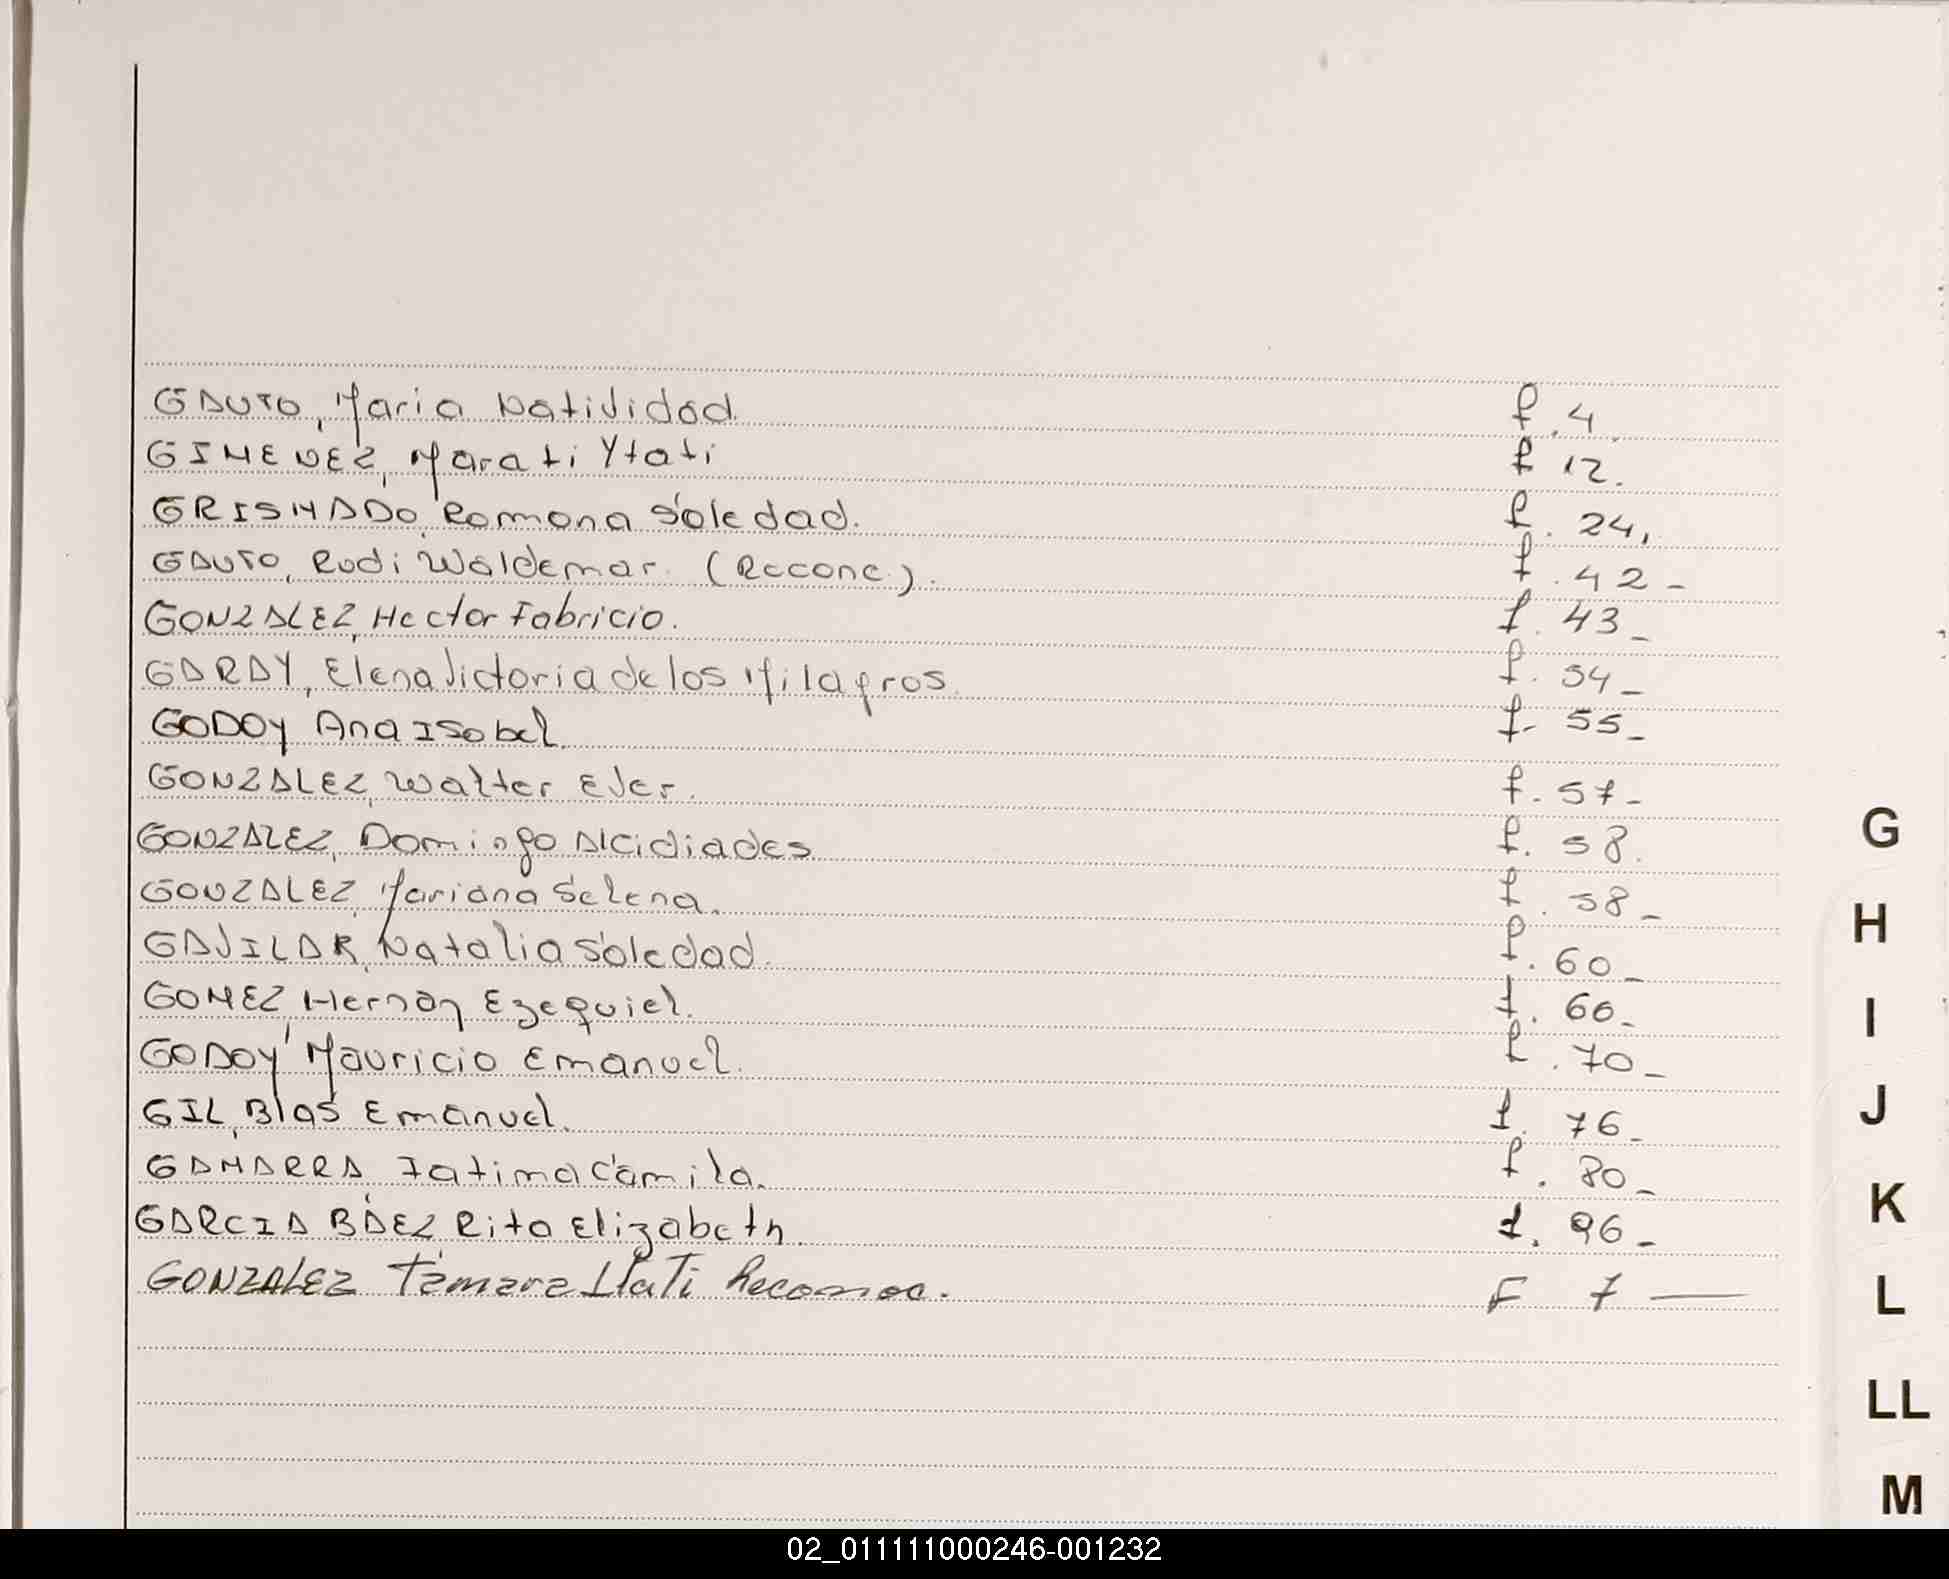 GAUTO, Maria Natividad. f. 4.
GIMENEZ, Marati Ytati f 12.
GRISMADO, Romona Soledad. f. 24,
GAUTO, Rodi Waldemar (Reconc.). f. 42-
GONZALEZ, Hector Fabricio. f. 43-
GARAY, Elena Victoria de los Milagros. f. 54-
GODOY Ana Isabel. f. 55-
GONZALEZ, Walter Ever. f. 57-
GONZALEZ, Domingo Alcidiades. f. 58.
GONZALEZ, Mariana Selena. f. 58-
GAVILAR, Natalia Soledad. f. 60-
GOMEZ, Hernan Ezequiel. f. 66-
GODOY, Mauricio Emanuel. f. 70-
GIL, Blas Emanuel. f. 76-
GAMARRA, Fatima Camila. f. 80-
GARCIA BÁEZ Rita Elizabeth. f. 96-
GONZALEZ Tamara Itati Reconoc. F 7 —
G
H
I
J
K
L
LL
M
02_011111000246-001232